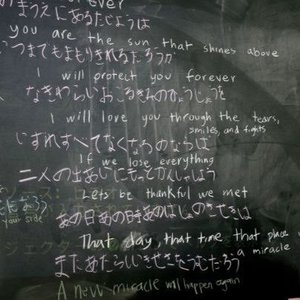 forever
のまうえにあるたいようは
you are the sun that shines above
いつまでもまもりきれるだろうか
I will protect you forever
なきわらいおこるきみのひょうじょうを
I will love you through the tears,
smiles, and fights
いずれすべてなくなるのならば
If we lose everything
二人の出あいにもっとかんしゃしよう
Lets be thankful we met
your side
あの日あの時あのばしょのきせきは
That day, that time, that place
a miracle
またあたらしいきせきをうむだろう
A new miracle will happen again